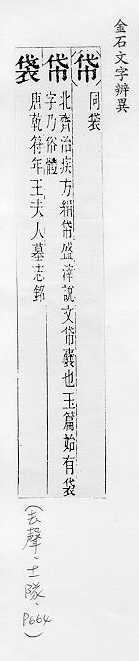 金石文字辨異
帒 同袋
帒 北齊治疾方絹帒盛滓說文帒囊也玉篇始有袋
字乃俗體
袋 唐乾符年王夫人墓志銘
(去聲、十一隊、P664